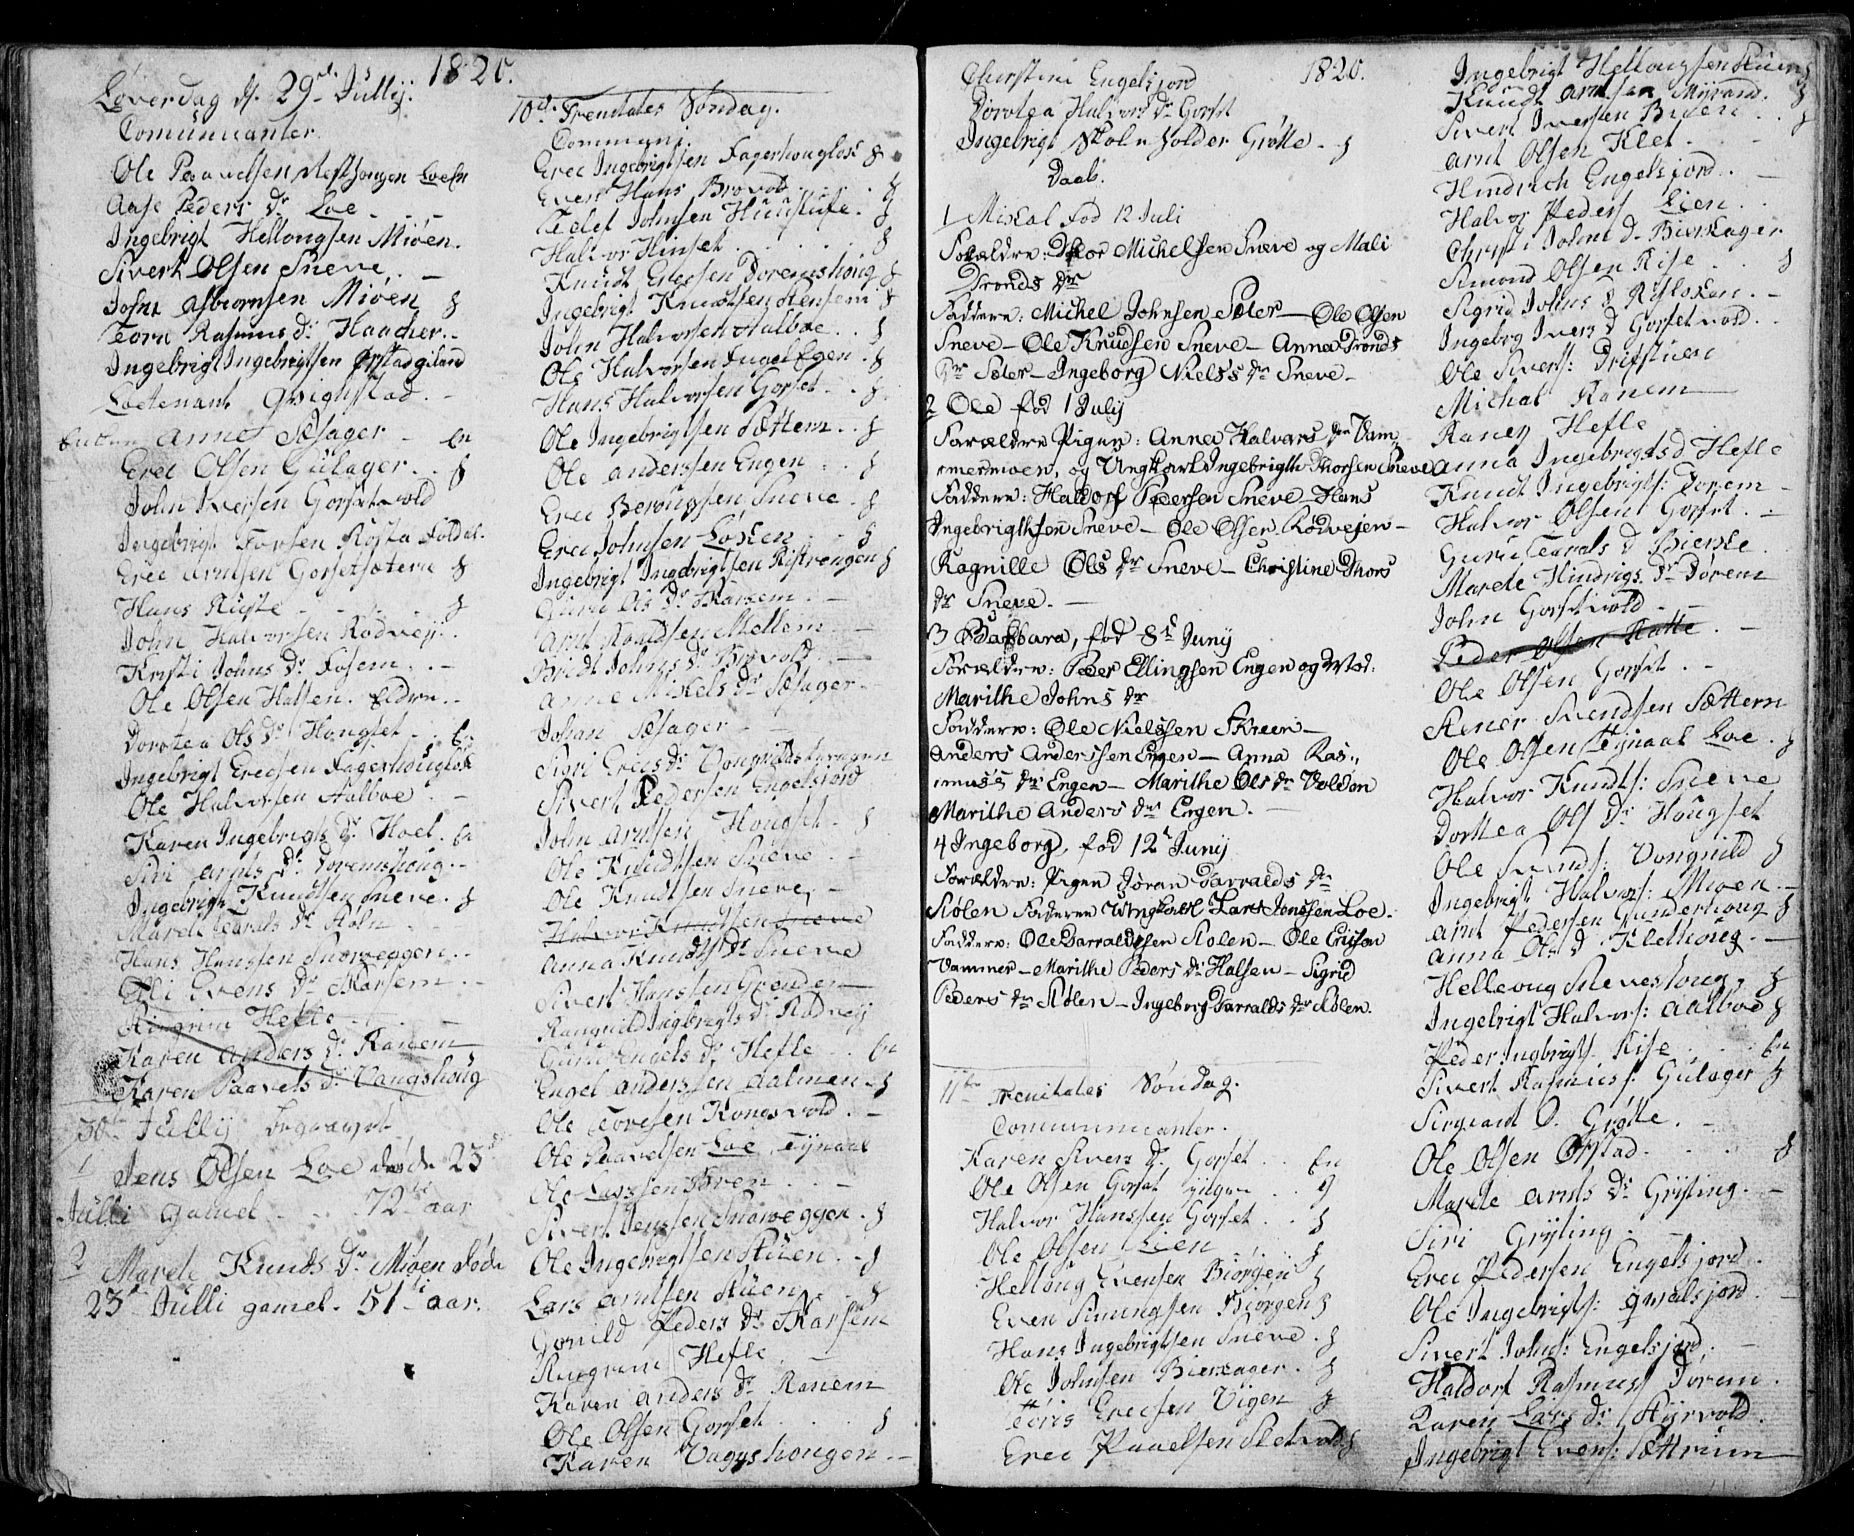 1820.
Løverdag d. 29de Jullij.
Comunicanter.
Ole Paavelsen Loe
Aase Peders Dr Loe
Ingebrigt Hellougsen Miøen.
Sivert Olsen Sneve
John Asbiørnsen Miøen
Torn Rasmus Dr Haacker
Ingebrigt Ingebrigtsen
Loetenant Qvignstad
Anne Æsager
Erec Olsen Gulager
John Iversen Gorsetvold
Ingebrigt Torsen Røsta Foldal
Erec Arntsen Gorsetsætern
Hans Ruste
John Halvorsen Rødvej
Kristi Johns Dr Fosem
Ole Olsen Halsen
Dorotea Ols Dr Hougset
Ingebrigt Erecsen Fagerhougløk
Ole Halvorsen Aalboe
Karen Ingebrigts Dr Hoel
Siri Arnts Dr Doremshoug
Ingebrigt Knudtsen Sneve
Maret Taralds Dr Støln
Hans Hanssen Snøweggen
Eli Evens Dr Skarsem
Ringrim Hefle
Karen Anders Dr Ranem
Karen Paavels Dr Vangshoug
30te Jullij begravet
1 Jens Olsen Loe døde 23de
Julli gamel 72 aar
2 Marete Knuds Dr Miøen døde
23de Julli gamel 51 aar.
10de Trenitates Søndag.
Communi:
Erec Ingebrigtsen Fagerhougløk
Evert Hans Brøvold
Tedet Johnsen Huustufe
Halvor Hinset
Knudt Erecsen Doremshoug
Ingebrigt Knudtsen Stensem
John Halvorsen Aalboe
Ole Halvorsen Engen
Hans Halvorsen Gorset
Ole Ingebrigtsen Sættem
Ole Anderssen Engen
Erec Berougsen Sneve
Erec Johnsen Løkken
Ingebrigt Ingebrigtsen Ristrengen
Guru Ols Dr Skarsem
Arnt Knudsen Mellem
Beridt Johns Dr Brøvold
Anne Mikels Dr Æsager
Johan Æsager
Sigri Erecs Dr
Sivert Pedersen Engelsiord
John Arntsen Hougset
Ole Knudtsen Sneve
Ole Knudtsen Sneve
Halvor Knudtsen Sneve
Anna Knuds Dr Sneve
Sivert Hanssen Grenden
Ranguild Ingbregts Dr Rødvej
Guru Engels Dr Hefle
Engel Anderssen Aalmen
Ole Toresen Kongsvold
Ole Paavelsen Loe Tynaal
Ole Larssen Støren
Sivert Jenssen Snøweggen
Ole Ingebrigtsen Stuen
Lars Arntsen Stuen
Gonild Peders Dr Skarsem
Ringrim Hefle
Karen Anders Dr Ranem
Ole Olsen Gorset
Karen Vangshougen
1820.
Cherstine Engelsjord
Dorotea Halvors Dr Gorset
Ingebrigt Skoleholder Grøtte
Daab.
1 Mikal fød 12 Juli
Forældre: Thor Michelsen Sneve og Mali
Tronds Dr
Faddere: Michel Johnsen Sæter — Ole Olsen
Sneve — Ole Knudsen Sneve — Anna Tronds
Dr Sæter — Ingeborg Niels's Dr Sneve —
2 Ole fød 1 Julij
Forældre Pigen: Anna Halvors Dr Vam-
mermoen, og Ungkarl Ingebrigth Thorsen Sneve
Faddere: Haldorf Pedersen Sneve — Hans
Ingebrigthsen Sneve — Ole Olsen Rodvejen —
Ragnille Ols Dr Sneve — Christine Thors
Dr Sneve. —
3 Barbara, fød 8de Junij
Forældre: Peder Ellingsen Engen og Mod:
Marithe Johns Dr
Faddere: Ole Nielssen Skreen —
Anders Anderssen Engen — Anna Ras-
muss Dr Engen — Marithe Ols Dr Volden
Marithe Anders Dr Engen. —
4 Ingeborg, fød 12te Junij
Forældre: Pigen Jøran Tarralds Dr
Stølen Faderen Ungkarl Lars Jonssen Loe.
Faddere: Ole Tarraldssen Stølen — Ole Ericson
Vammer — Marithe Peders Dr Halsen — Sigrid
Peders Dr Stølen — Ingeborg Tarralds Dr Stølen.
11te Trenitates Søndag.
Communicanter.
Karen Sivers Dr Gorset
Ole Olsen Gorset yngre
Halvor Hanssen Gorset
Ole Olsen Lien
Helloug Evensen Biørgen
Even Simingsen Biørgen
Hans Ingebrigtsen Sneve
Ole Johnsen Bierkager
Tøris Erecsen Vigen
Erec Paaelsen Sletvold
Ingebrigt Hellougsen Stuen
Knudt Arntsen Myrand
Sivert Iversen Buen
Arnt Olsen Klet
Hindrich Engelsjord
Halvor Peders Lien
Christi Johns D. Bierkager
Simond Olsen Rise
Sigrid Johns D Riisløken
Ingeborg Ivers D Gorsetvold
Ole Sivers: Drifstuen
Michal Ranem
Raney Hefle
Anna Ingebrigts D Hefle
Knudt Ingebrigts: Dorem
Halvor Olsen Gorset
Guru Taralds D Bierke
Marete Hindrigs Dr Dørem
John Gorsetvold
Peder Olsen Ratte
Ole Olsen Gorset
Stener Svendsen Sættem
Ole Olsen Tynaal Loe
Halvor Knudts: Sneve
Dorttea Ols Dr Hougset
Ole Svends: Vongnild
Ingebrigt Halvors: Miøen
Arnt Pedersen Gunderhoug
Anna Ols D. Klethoug
Hellevoug Sneveshoug
Ingebrigt Halvors: Aalboe
Peder Ingbrigts Rise
Sivert Rasmus: Gulager
Sirgeant O. Grøtte
Ole Olsen Ørstad
Marete Arnts Dr Gryting
Siri Gryting
Erec Pedersen Engelsjord
Ole Ingebrigts: Qvalsjord
Sivert Johns: Engelsjord
Haldorf Rasmuss Dorem
Karen Lars Dr Styrvold
Ingebrigt Evens: Sættrum